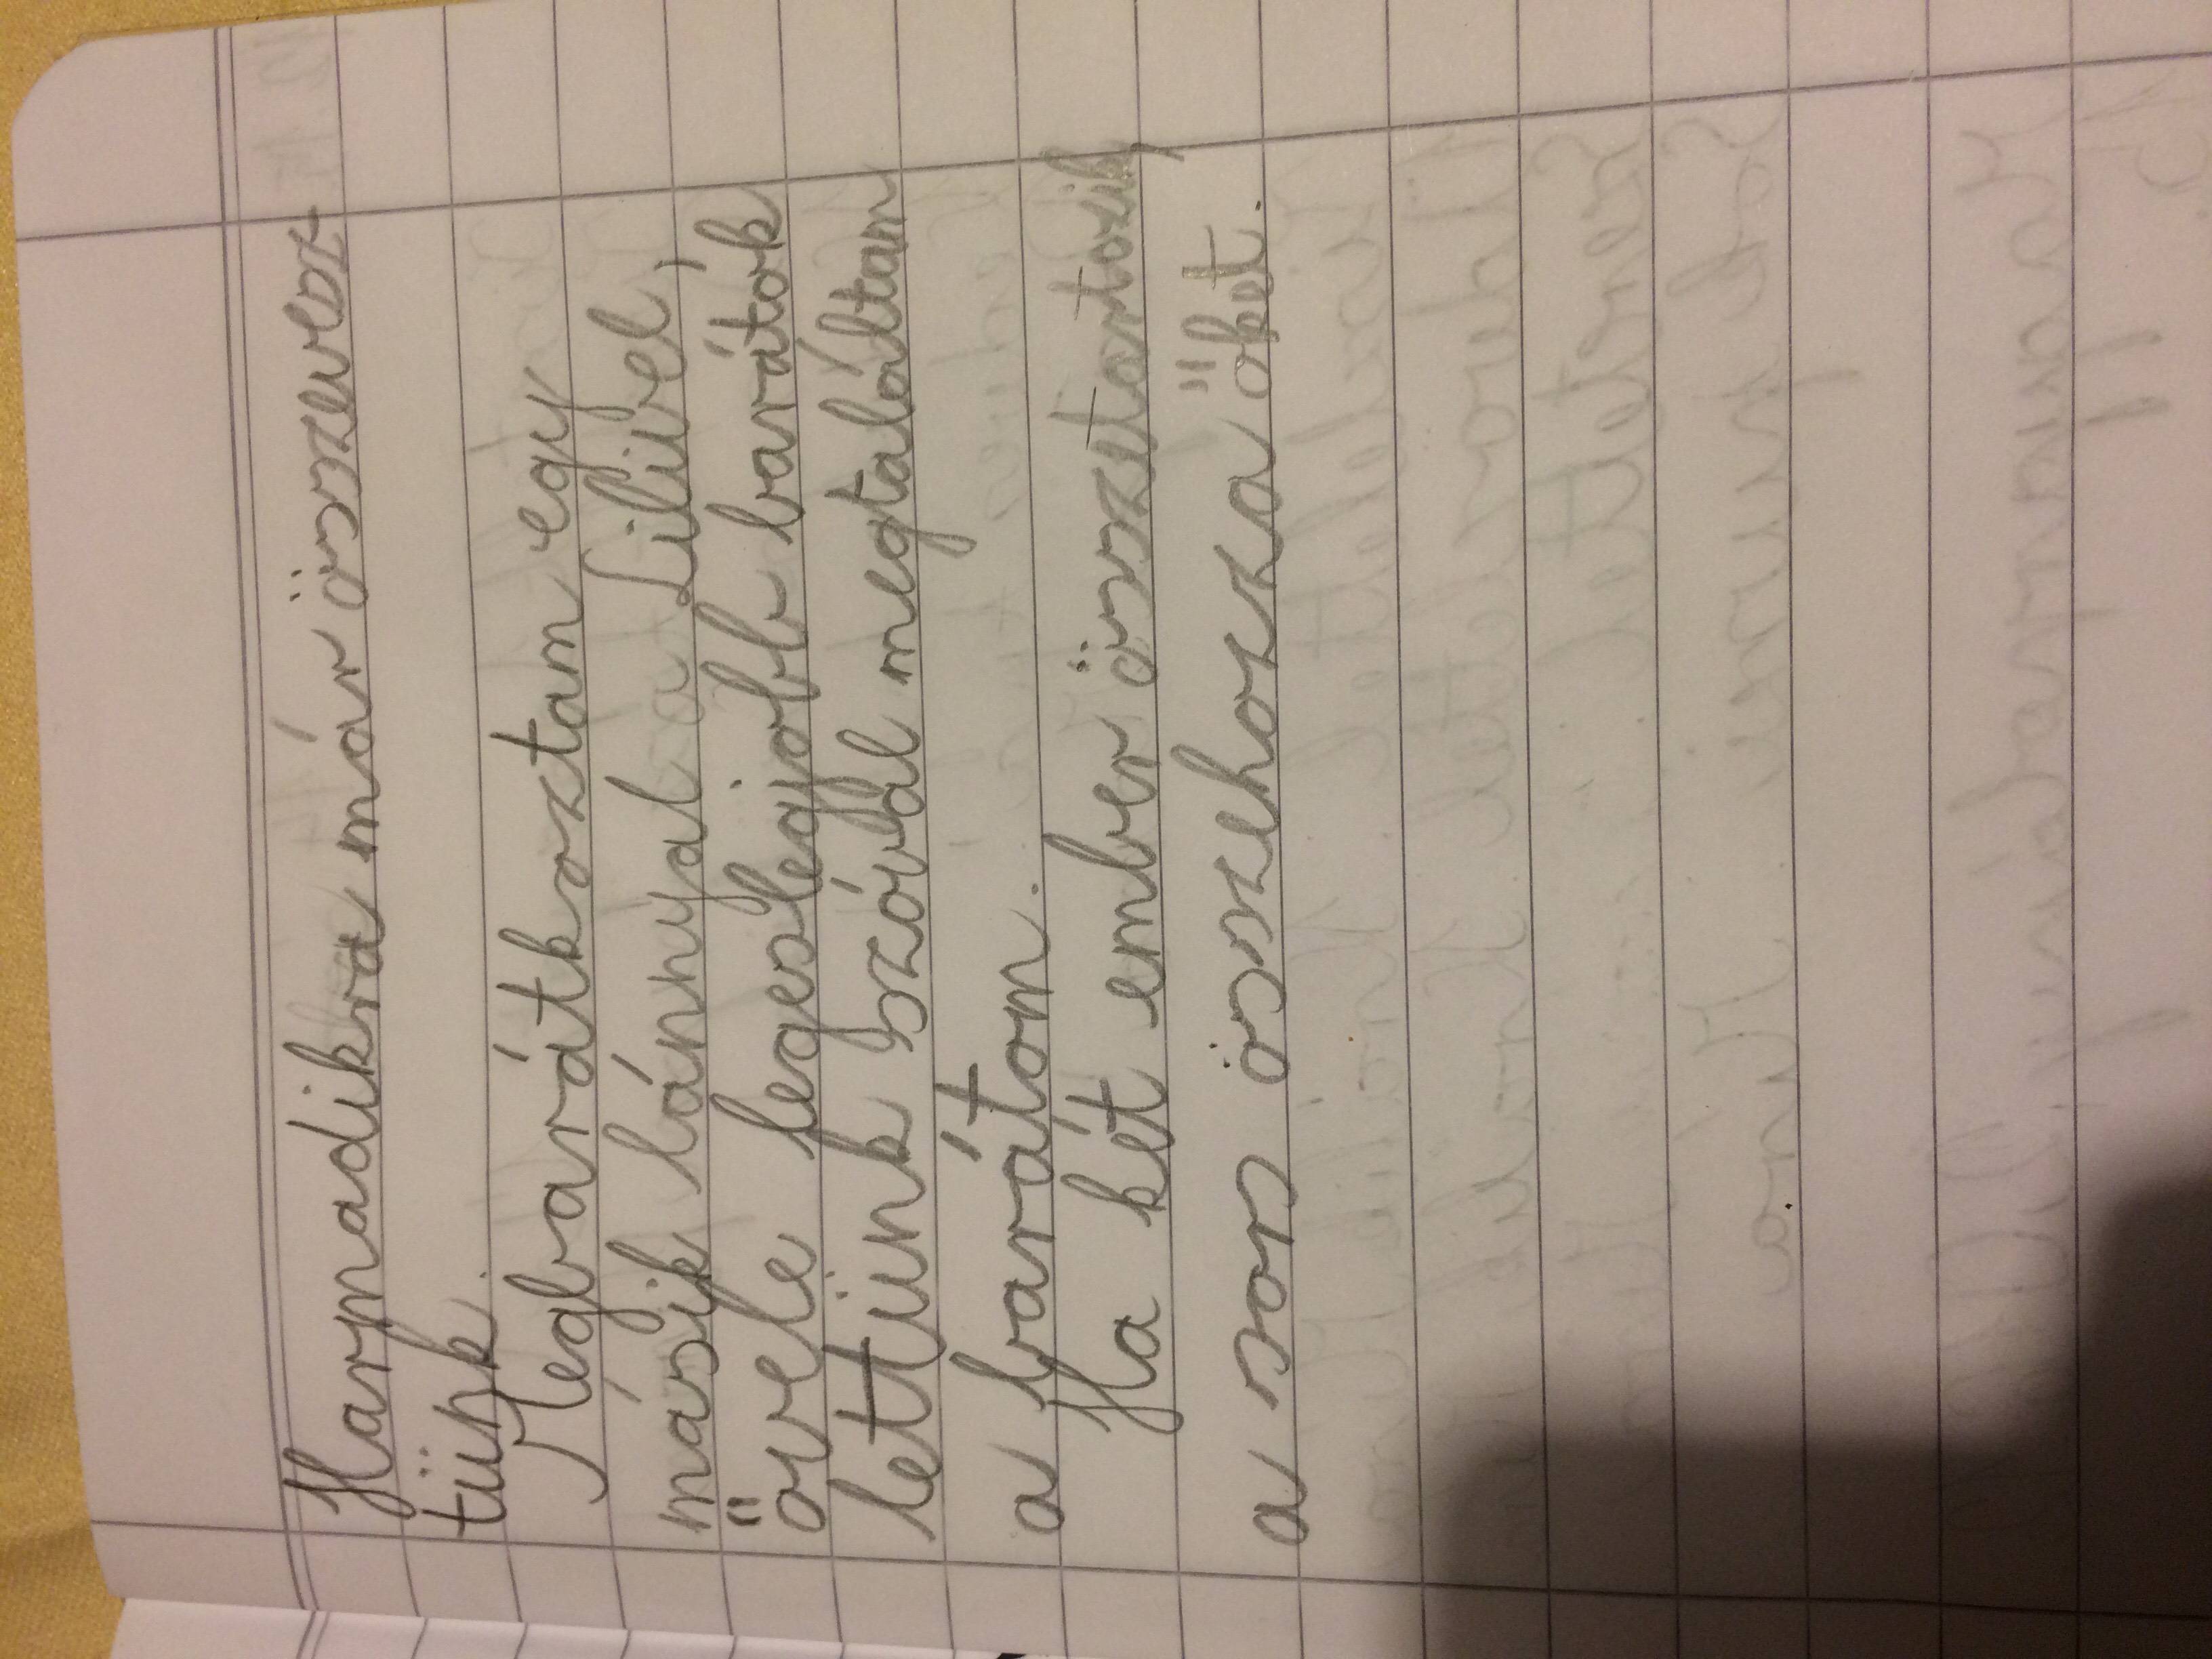 Harmadikra már összevesz
tünk.
Megbarátkoztam egy
másik lánnyal a Lilivel,
ővele legeslegjobb barátok
lettünk szóval megtaláltam
a barátom.
Ha két ember összetartozik,
a sors összehozza őket.